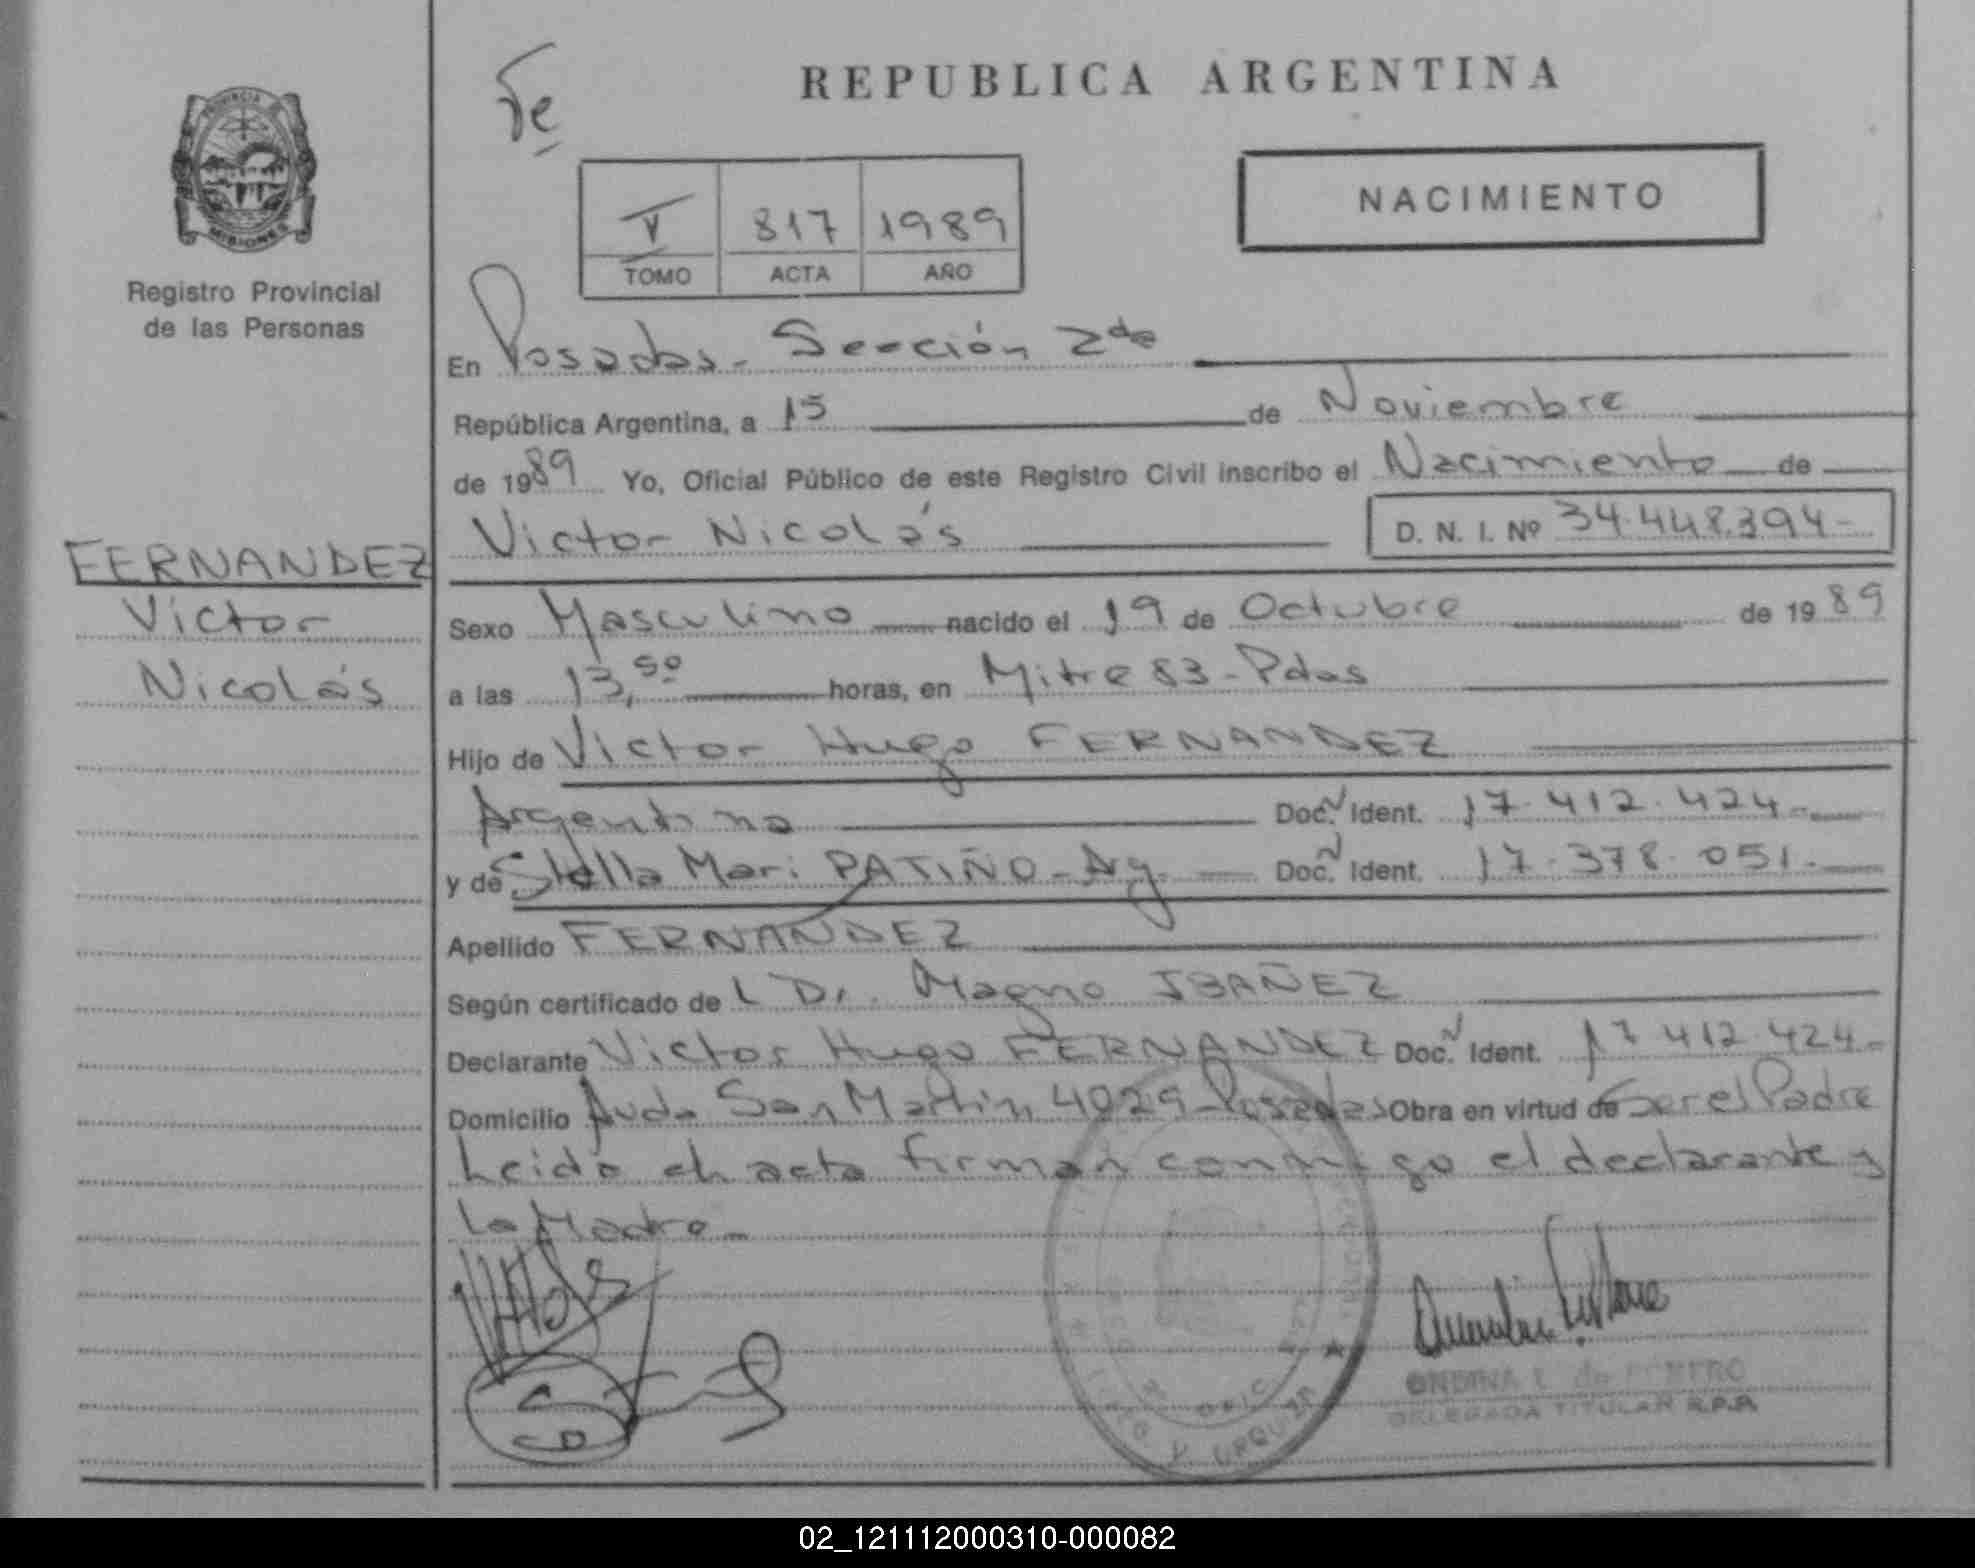 REPUBLICA ARGENTINA
Te
NACIMIENTO
V 817 1989
TOMO ACTA AÑO
PROVINCIA DE
MISIONES
Registro Provincial
de las Personas
FERNANDEZ
Victor
Nicolás
En Posadas - Sección 2da
República Argentina, a 15 de Noviembre
de 1989 Yo, Oficial Público de este Registro Civil inscribo el Nacimiento de
Victor Nicolás D. N. I. Nº 34.448.394-
Sexo Masculino nacido el 19 de Octubre de 1989
a las 13,50 horas, en Mitre 83 - Pdas
Hijo de Victor Hugo FERNANDEZ
Argentino Doc. N Ident. 17.412.424-
y de Stella Mari PATIÑO - Ag Doc. N Ident. 17.378.051-
Apellido FERNANDEZ
Según certificado de L Dr. Magno IBAÑEZ
Declarante Victor Hugo FERNANDEZ Doc. N Ident. 17 412.424-
Domicilio Avda San Martin 4029 - Posadas Obra en virtud de Ser el Padre
Leida el acta firman conmigo el declarante y
La Madre -
ONDINA E de ROMERO
DELEGADA TITULAR R.P.P.
URQUIZA
02_121112000310-000082